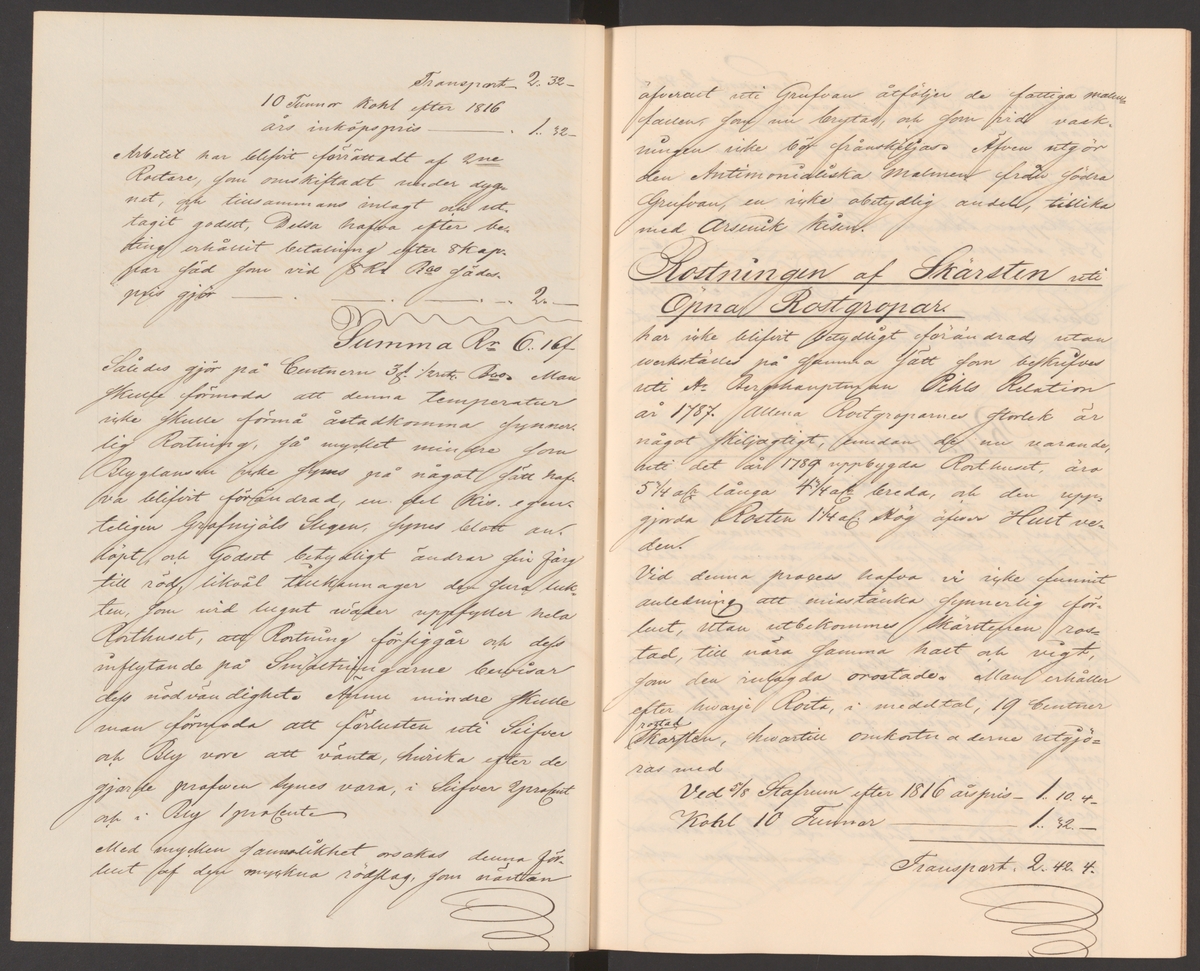 Transport 2. 32 –
10 Tunnor Kohl efter 1816
års inköpspris — . 1. 32 –
Arbetet har blifvit förrättadt af 2ne
Rostare, som omskiftadt under dyg-
net, och tillsammans inlagt och ut-
tagit godset, Dessa hafva efter be-
ting erhållit betalning efter 8 kap-
par säd som vid 8 Rd Bco sädes-
pris gjör — . — . — . — . 2. —
Summa Rd 6. 16 f
Således gjör på Centnern 3 f. 1/2 rst. Bco. Man
skulle förmoda att denna temperatur
icke skulle förmå åstadkomma synner-
lig Rostning, så mycket mindre som
Blyglansen icke synes på något sätt haf-
va blifvit förändrad, en del Kis. egen-
teligen Grofmjöls Slegen, synes blott an-
löpt, och Godset betydligt ändrar sin färg
till röd, likväl tillkännager den sura luk-
ten, som vid lugnt wäder uppfyller hela
Rosthuset, att Rostning försiggår och dess
inflytande på Smältningarne bevisar
dess nödvändighet. Ännu mindre skulle
man förmoda att förlusten uti Silfver
och Bly vore att vänta, hvilka efter de
gjorde profven synes vara, i Silfver 2 procent
och i Bly 1 procent.
Med mycken sannolikhet orsakas denna för-
lust af den myckna rödslag, som nästan
öfverallt uti Grufvan åtföljer de fattiga malm
fallen, som nu brytas, och som vid vask-
ningen icke bör frånskiljas. Äfven utgör
den Antimonialiska malmen från södra
Grufvan, en icke obetydlig andel, tillika
med Arsenik kisen.
Rostningen af Skärsten uti
Öpna Rostgropar.
har icke blifvit betydligt förändrad, utan
werkställes på samma sätt som beskrifves
uti Hr Berghauptman Pihls Relation
år 1787. Allena Rostgroparnes storlek är
något skiljagtigt, emedan de nu varande,
uti det år 1789 uppbygda Rosthuset, äro
5 3/4 aln långa 4 3/4 aln breda, och den upp-
gjorda Rosten 1 1/4 aln Hög öfver Hvit ve-
den.
Vid denna process hafva vi icke funnit
anledning att misstänka synnerlig för-
lust, utan utbekommes Skärstenen ros-
tad, till nära samma halt och vigt,
som den inlagda orostade. Man erhåller
efter hwarje Rosta, i medeltal, 19 Centner
rostad
Skärsten, hwartill omkostnaderne utgjö-
ras med
Ved 5/8 Stafrum efter 1816 års pris – 1. 10. 4 –
Kohl 10 Tunnor — 1. 32. —
Transport. 2. 42. 4.